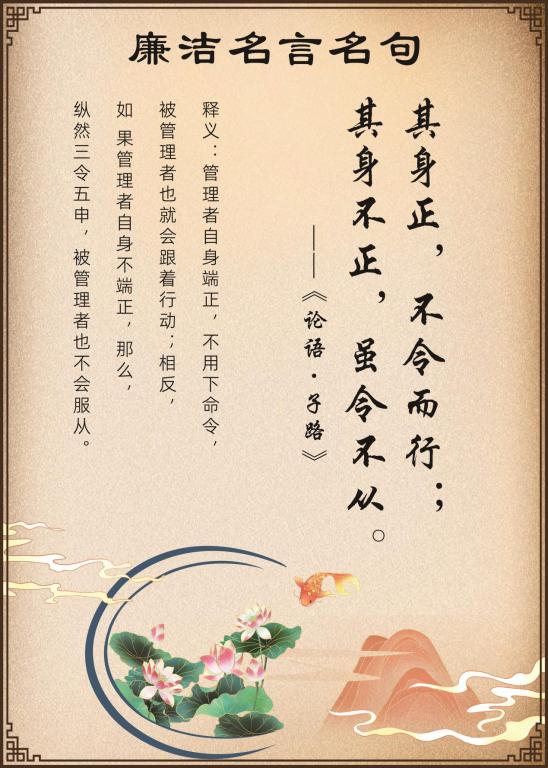 廉洁名言名句
其身正，不令而行；
其身不正，虽令不从。
——《论语·子路》
释义：管理者自身端正，不用下命令，
被管理者也就会跟着行动；相反，
如 果管理者自身不端正，那么，
纵然三令五申，被管理者也不会服从。